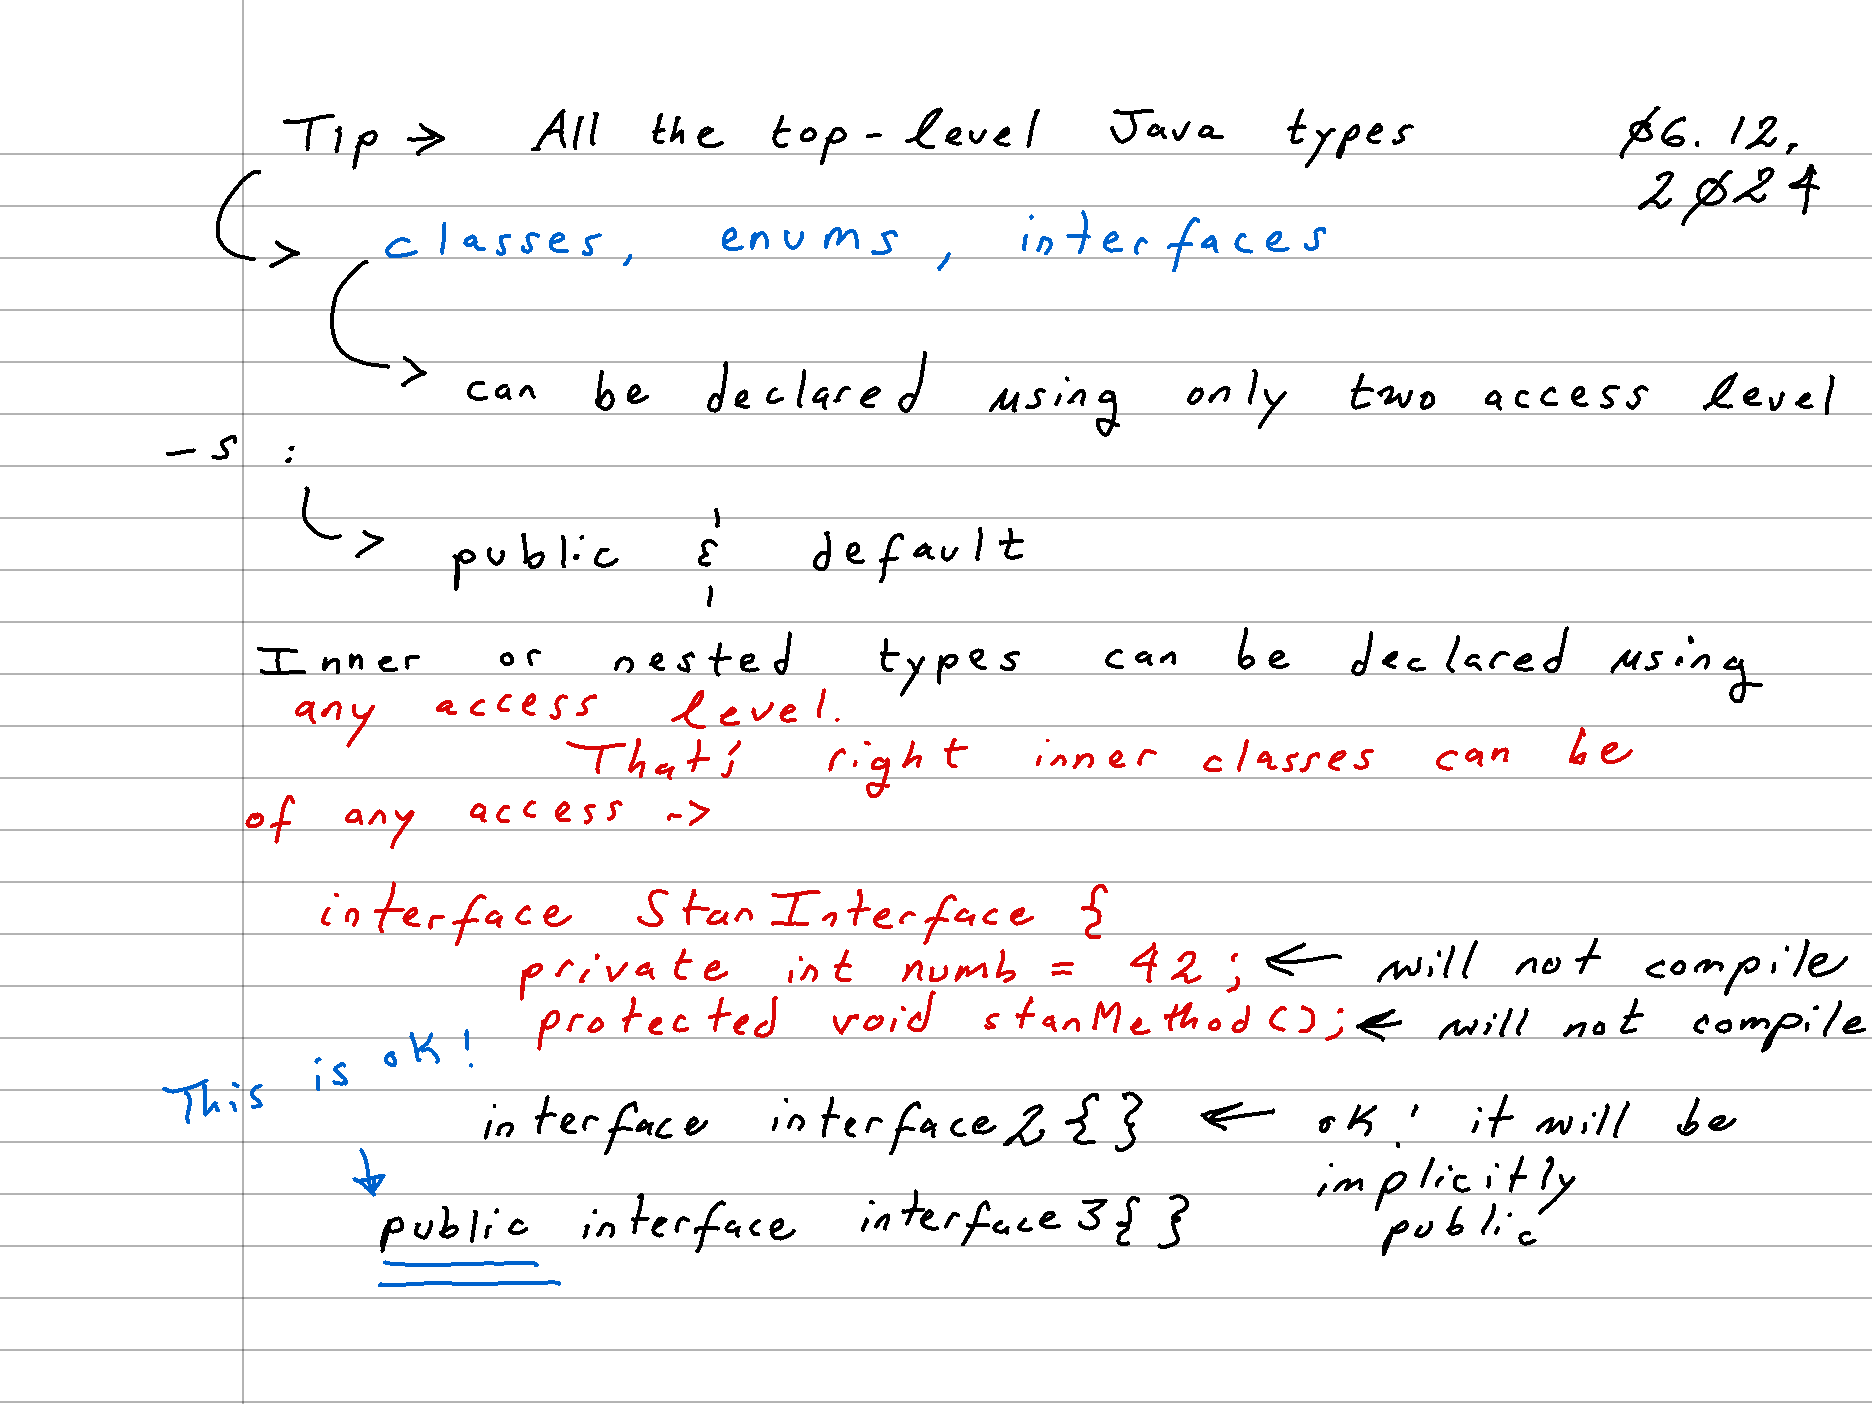 Tip → All the top-level Java types
ø6.12.
2ø24
classes, enums, interfaces
can be declared using only two access level
-s :
public & default
Inner or nested types can be declared using
any access level.
That's right inner classes can be
of any access ->
interface StanInterface {
private int numb = 42; ← will not compile
protected void stanMethod(); ← will not compile
This is ok!
interface interface2 { } ← ok! it will be
implicitly
public interface interface3 { }
public